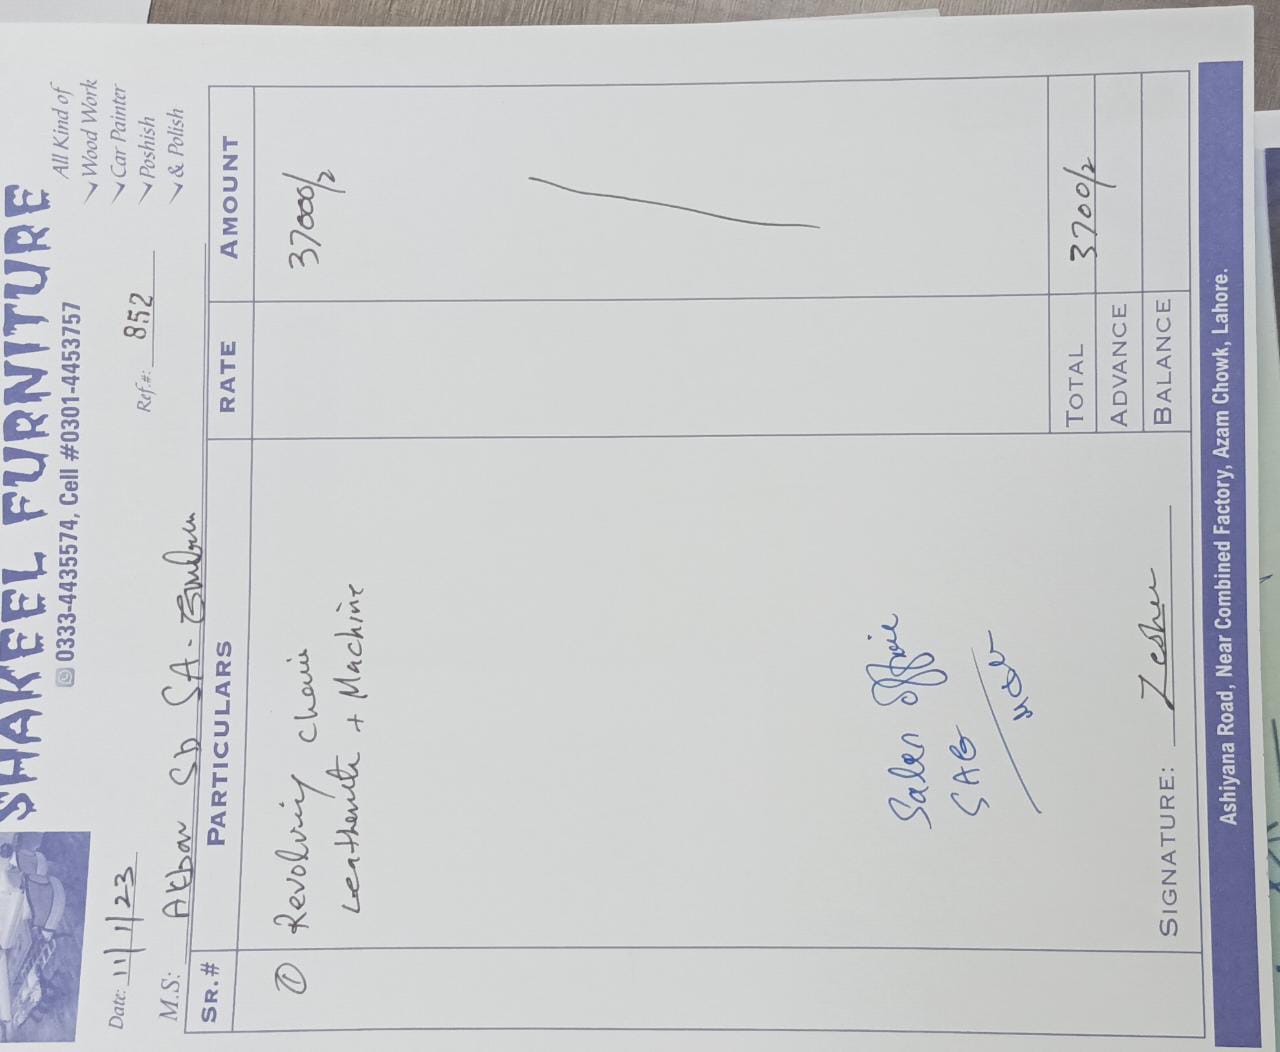 SHAKEEL FURNITURE
0333-4435574, Cell #0301-4453757
All Kind of
Wood Work
Car Painter
Poshish
& Polish
Date: 11/1/23
Ref.#: 852
M.S: Akbar Sb SA-
SR.# PARTICULARS RATE AMOUNT
① Revolving Chair 37000/2
+ Machine
Sales Office
SAG
TOTAL 3700/2
ADVANCE
BALANCE
SIGNATURE:
Ashiyana Road, Near Combined Factory, Azam Chowk, Lahore.